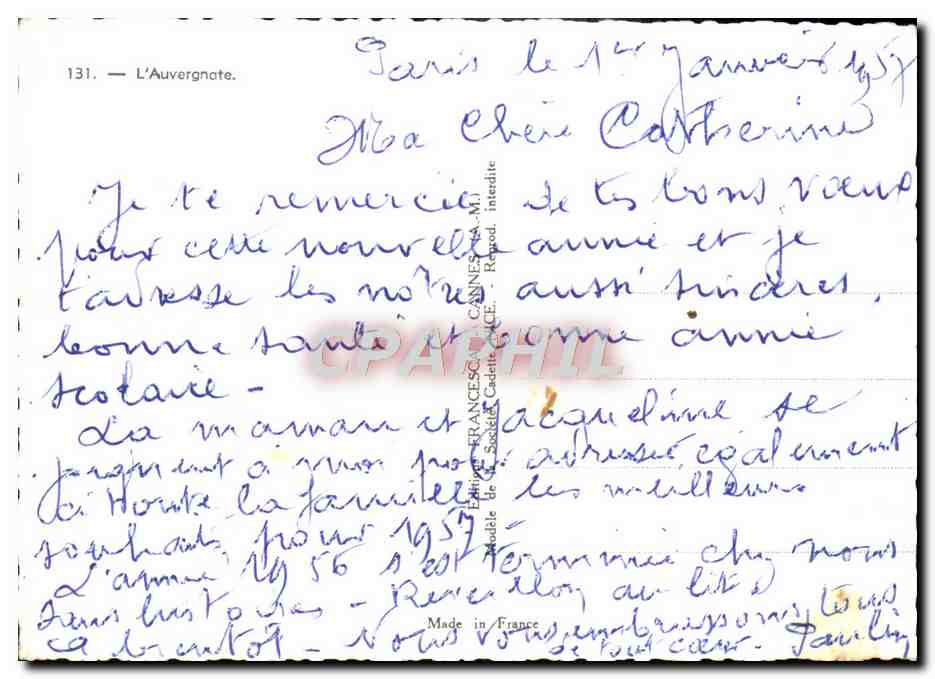 131. — L'Auvergnate.
Paris le 1er Janvier 1957
Ma Chère Catherine
Je te remercie de tes bons vœux
pour cette nouvelle année et je
t'adresse les nôtres aussi sincères,
bonne santé et bonne année
scolaire -
La maman et Jacqueline se
joignent a moi pour adresser également
à toute la famille les meilleurs
souhaits pour 1957 -
L'année 1956 s'est terminée chez nous
sans histoires - Reveillon au lit
a bientôt - Nous vous embrassons tous
de tout cœur.
Edition FRANCESCA, CANNES (A.-M.)
Modèle de la Société Cadette NICE. - Reprod. interdite
Made in France
CPAPHIL